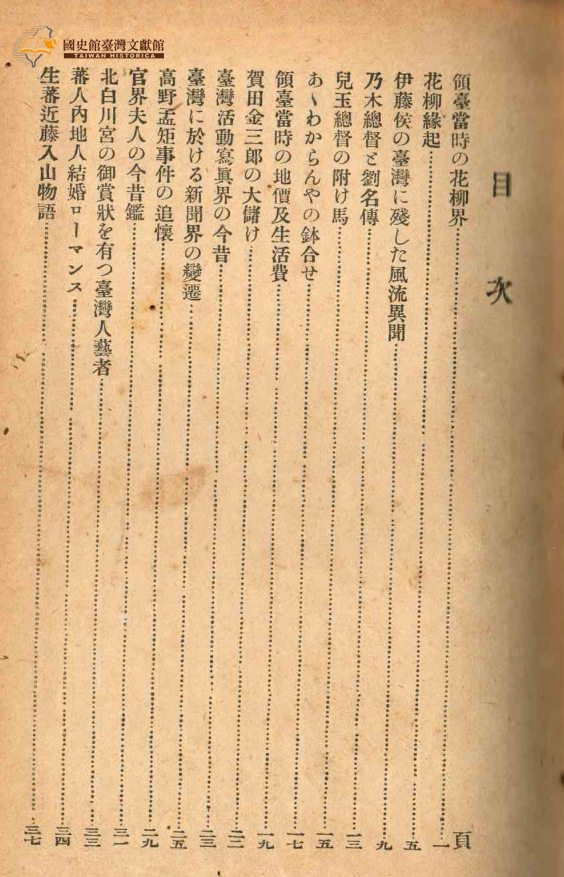 國史館臺灣文獻館
TAIWAN HISTORICA
目次
頁
領臺當時の花柳界……一
花柳緣起……五
伊藤侯の臺灣に殘した風流異聞……九
乃木總督と劉名傳……九
兒玉總督の附け馬……一三
あゝわからんやの鉢合せ……一五
領臺當時の地價及生活費……一七
賀田金三郎の大儲け……一九
臺灣活動寫眞界の今昔……二二
臺灣に於ける新聞界の變遷……二三
高野孟矩事件の追懷……二五
官界夫人の今昔鑑……二九
北白川宮の御賞狀を有つ臺灣人藝者……三一
蕃人內地人結婚ローマンス……三三
生蕃近藤入山物語……三四
三七